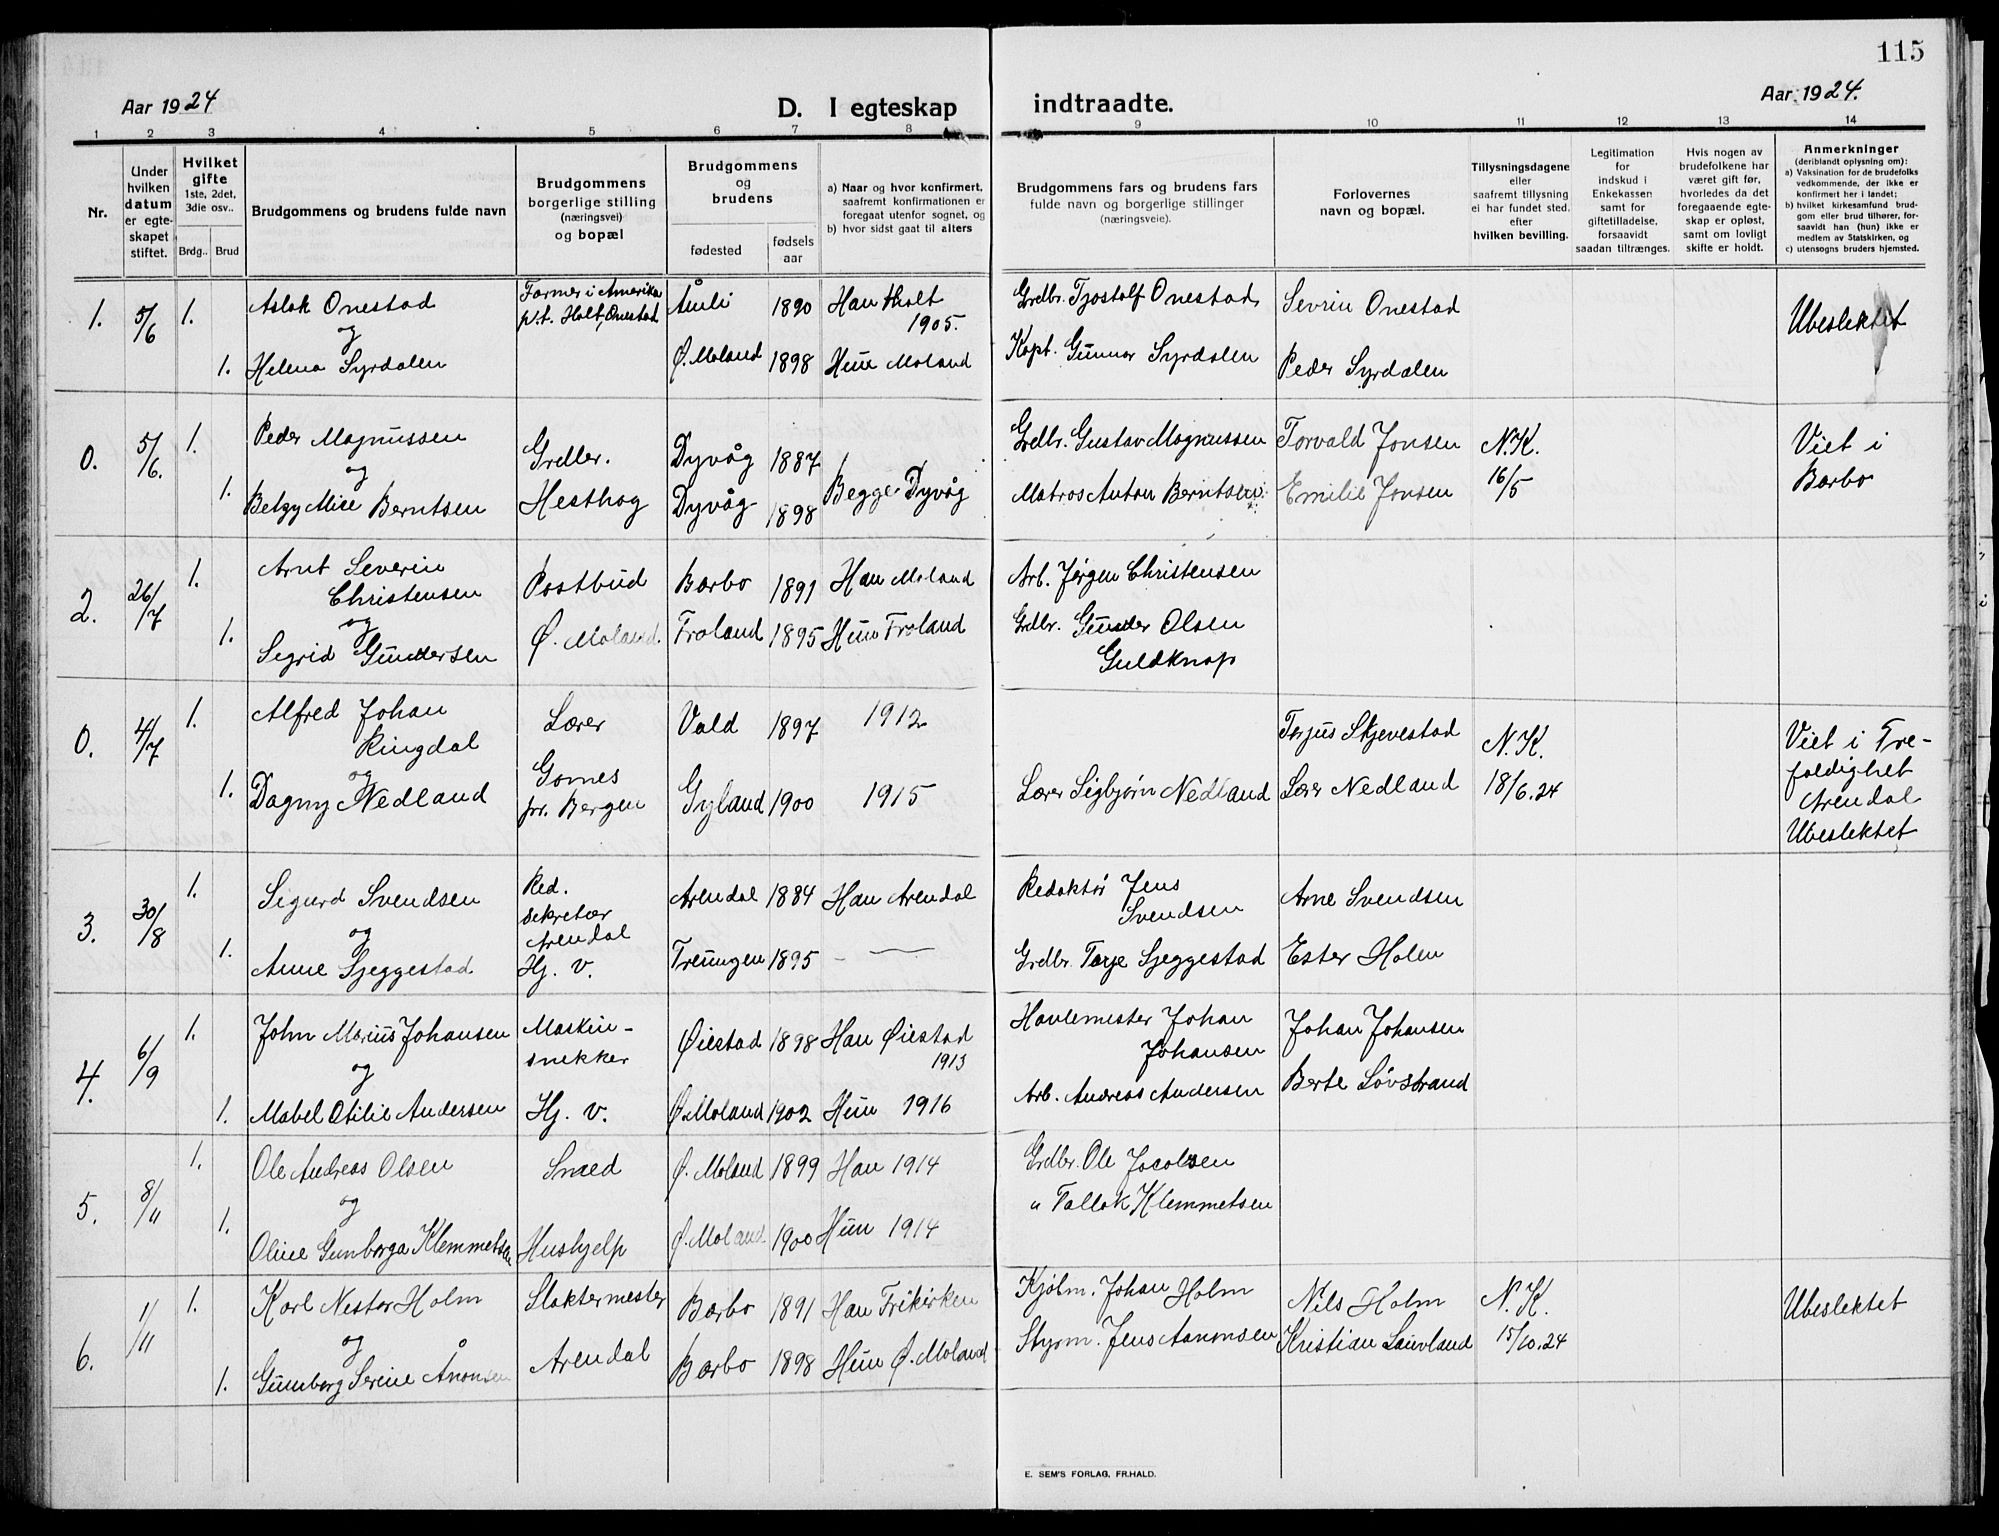 115
Aar 1924
D. I egteskap
indtraadte.
Aar 1924.
1 2 3 4 5 6 7 8 9 10 11 12 13 14
Nr.
Under hvilken datum er egte- skapet stiftet.
Hvilket gifte 1ste, 2det, 3die osv..
Brdg.. Brud
Brudgommens og brudens fulde navn
Brudgommens borgerlige stilling (næringsvei) og bopæl
Brudgommens og brudens
fødested
fødsels aar
a) Naar og hvor konfirmert, saafremt konfirmationen er foregaat utenfor sognet, og
b) hvor sidst gaat til alters
Brudgommens fars og brudens fars fulde navn og borgerlige stillinger (næringsveie).
Forlovernes navn og bopæl.
Tillysningsdagene eller saafremt tillysning ei har fundet sted, efter hvilken bevilling.
Legitimation for indskud i Enkekassen samt for giftetilladelse, forsaavidt saadan tiltrænges.
Hvis nogen av brudefolkene har været gift før, hvorledes da det foregaaende egte- skap er opløst, samt om lovligt skifte er holdt.
Anmerkninger
(deriblandt oplysning om):
a) Vaksination for de brudefolks vedkommende, der ikke er konfirmert her i landet;
b) hvilket kirkesamfund brud- gom eller brud tilhører, for- saavidt han (hun) ikke er medlem av Statskirken, og
c) utensogns bruders hjemsted.
1. 5/6 1. Aslak Onestad Farmer i Amerika Åmli 1890 Han Holt Grdbr. Tjostolf Onestad Sevrin Onestad Ubeslektet
og p.t. Holt, Onestad 1905.
1. Helena Syrdalen Ø. Moland 1898 Hun Moland Kapt. Gunnar Syrdalen Peder Syrdalen
0. 5/6. 1. Peder Magnussen Dyvåg 1887 Grdbr. Gustav Magnussen Torvald Jonsen N.K. Viet i
og Hesthag Begge Dyvåg 16/5 Barbo
1. Betzy Berntsen Dyvåg 1898 Matros Anton Berntsen Emilie Jonsen
2. 26/7 1. Arnt Severin Postbud Barbo 1891 Han Moland Arb. Jørgen Christensen
Christensen
og
1. Sigrid Gundersen Ø. Moland. Froland 1895 Hun Froland Grdbr. Gunder Olsen
Guldknap
0. 4/7 1. Alfred Johan Lærer Vald 1897 1912 Torjus Skjevestad N.K. Viet i Tre-
Ringdal 18/6.24 foldighet
og Arendal
1. Dagny Nedland pr. Bergen Gyland 1900 1915 Lærer Sigbjørn Nedland Lærer Nedland Ubeslektet
3. 30/8 1. Sigurd Svendsen Red. Arendal 1884 Han Arendal Redaktør Jens Arne Svendsen
og sekretær Svendsen
Arendal
1. Anne Sjeggestad Hj. v. Treungen 1895 - — Grdbr. Terje Sjeggestad Ester Holen
4. 6/9 1. John Marius Johansen Maskin- Øiestad 1898 Han Øiestad Havlemester Johan Johan Johansen
og snekker 1913 Johansen
1. Mabel Otilie Andersen Hj. v. Ø. Moland 1902 Hun 1916 Arb. Andreas Andersen Berte Løvstrand
5. 8/11 1. Ole Andreas Olsen Smed Ø. Moland 1899 Han 1914 Grdbr. Ole Jacobsen
og
1. Oline Gunborga Klemmetsen Hushjelp Ø. Moland 1900 Hun 1914 " Tallak Klemmetsen
6. 1/11 1. Karl Nestor Holm Slaktermester Barbo 1891 Han Frikirken Kjølm. Johan Holm Nils Holm N.K. Ubeslektet
og
1. Gunborg Serine Ånonsen Arendal Barbo 1898 Hun Ø. Moland Styrm. Jens Aanonsen Kristian 15/10.24
E. SEM'S FORLAG, FR.HALD.